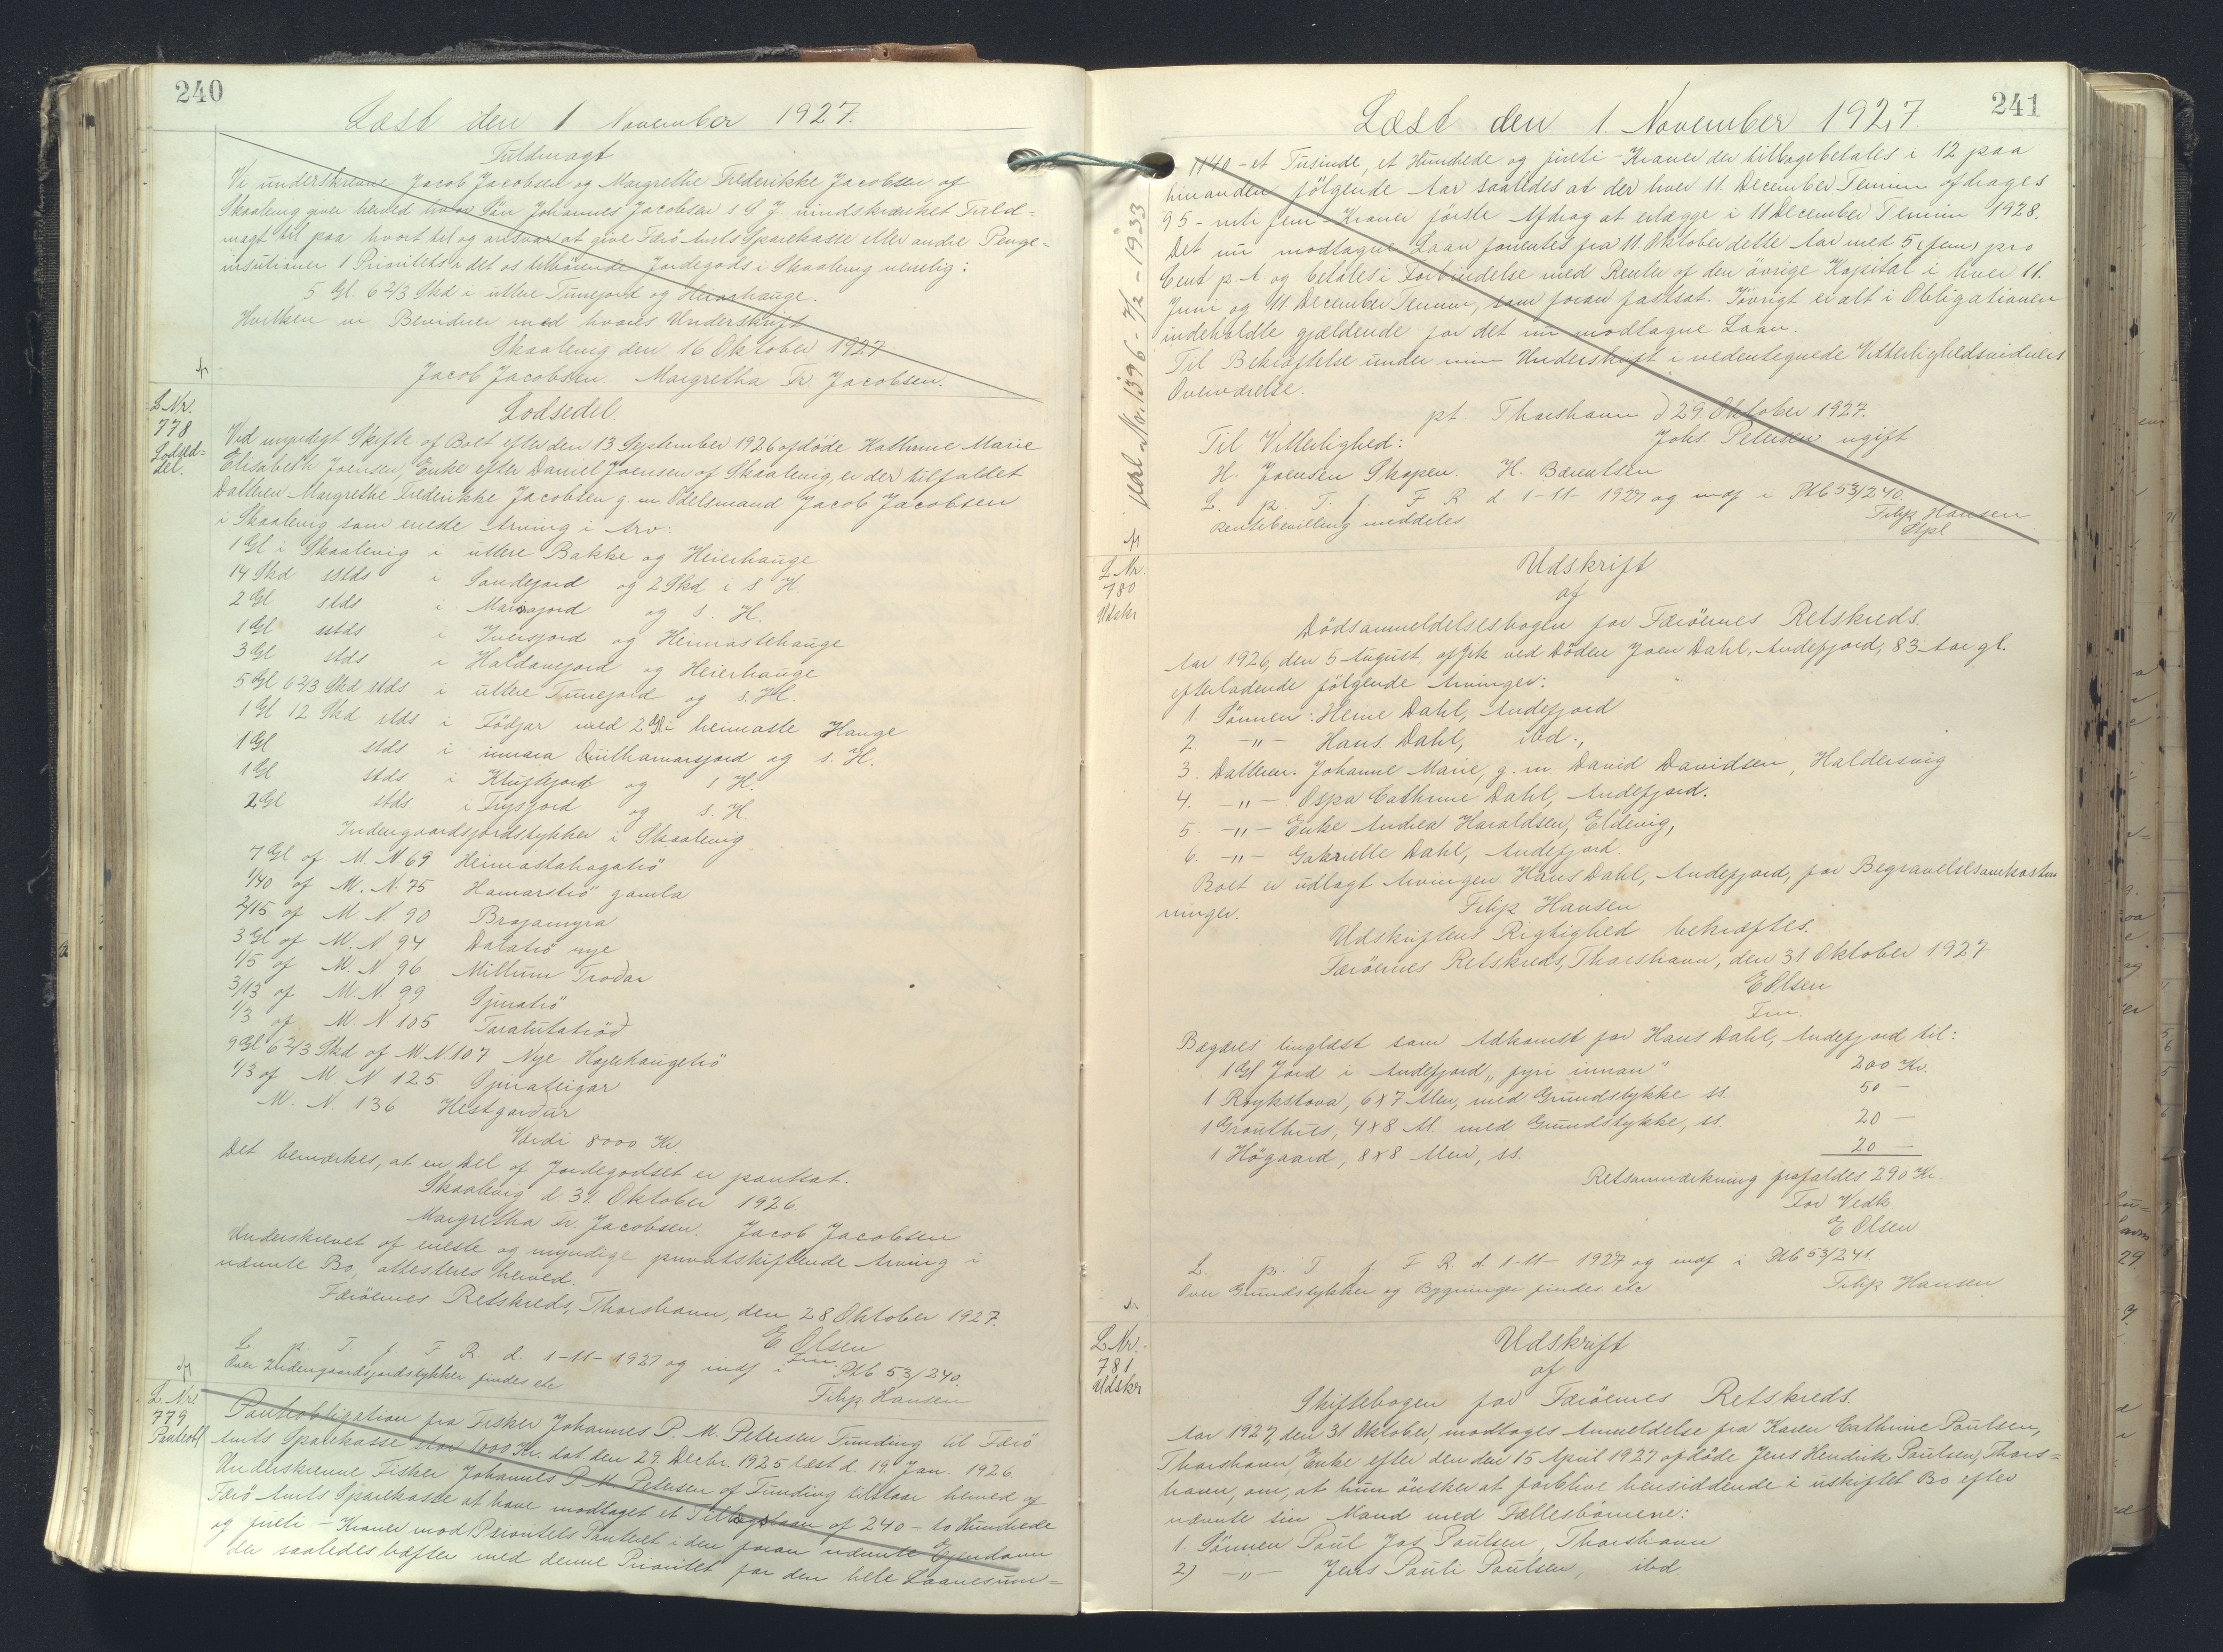 240
Læst den 1 November 1927.
Fuldmagt
Vi underskrevne Jacob Jacobsen og Margrethe Frederikke Jacobsen af
Skaalevig giver herved vor Søn Johannes Jacobsen s S J uindskrænket Fuld-
magt til paa vort til og ansvar at give Færö Amts Sparekasse eller andre Penge-
insutioner 1 Prioritets i det os tilhörende Jordegods i Skaalevig nemlig:
5 Gl. 6 2/3 Skd i uttere Tunejord og Heiarhauge.
Hvilken vi Bevidner med hvores Underskrift
Skaalevig den 16 Oktober 1927
Jacob Jacobsen. Margretha Fr. Jacobsen.
L Nr.
778
Lodsed-
del.
Lodseddel
Ved myndigt Skifte af Boet efter den 13 September 1926 afdöde Kathrine Marie
Elisabeth Joensen, Enke efter Daniel Joensen af Skaalevig, er der tilfaldet
Datteren Margrethe Frederikke Jacobsen g. m. Odelsmand Jacob Jacobsen
i Skaalevig som eneste Arving i Arv:
1 Gl i Skaalevig i uttere Bakke og Heierhauge
14 Skd sstds i Sandejord og 2 Skd i s. H.
2 Gl stds i Mariajord og s. H.
1 Gl sstds i Iversjord og Heimastehauge
3 Gl stds i Haldansjord og Heierhauge
5 Gl 6 2/3 Skd stds i uttere Tunejord og s. H.
1 Gl 12 Skd stds i Fødjar med 2 Gl i heimaste Hauge
1 Gl stds i innara Quilhamarsjord og s. H.
1 Gl stds i Klufkjord og s H.
2 Gl stds i Frysjord og s. H.
Indengaardsjordstykker i Skaalevig.
7 Gl af M. N 69 Heimastahagatrö
1/40 af M. N. 75 Hamarströ gamla
2/15 af M N. 90 Brojamyra
3 Gl af M. N 94 Dalatrö nye
1/5 af M. N 96 Millum Trodar
3/13 af M. N. 99 Gjuratrö
1/3 af M. N. 105 Taralutatröd
9 Gl 6 2/3 Skd af M. N 107 Nye Hajerhaugetrö
1/3 af M. N 125 Gjurateigar
M. N. 136 Hestgardur
Værdi 8000 Kr.
Det bemærkes, at en Del af Jordegodset er pantsat.
Skaalevig d. 31. Oktober 1926.
Margretha Fr. Jacobsen. Jacob Jacobsen
Underskrevet af eneste og myndige privatskiftende Arving i
nævnte Bo, attesteres herved.
Færöernes Retskreds, Thorshavn, den 28 Oktober 1927.
E. Olsen
Fm.
L. p. T. f. F R. d. 1-11-1927 og indf i Ptb 53/240.
Over Indengaardsjordstykker findes etc
Filip Hansen
L. Nr.
779
Panteobl
Panteobligation fra Fisker Johannes P. M. Petersen Funding til Færö
Amts Sparekasse stor 1000 Kr. dat. den 29. Decbr. 1925 læst d. 19. Jan. 1926.
Underskrevne Fisker Johannes P M. Petersen af Funding tilstaar herved af
Færö Amts Sparekasse at have modtaget et Tillægslaan af 240 - to Hundrede
og firti - Kroner mod Prioritets Panteret i den foran nævnte Ejendom
der saaledes hæfter med denne Prioritet for den hele Laanesum-
241
Læst den 1. November 1927.
1140 - et Tusinde, et Hundrede og firti - Kroner der tilbagebetales i 12 paa
hinanden følgende Aar saaledes at der hver 11. December Termin afdrages
95 - niti fem - Kroner förste Afdrag at erlægge i 11 December Termin 1928.
Det nu modtagne Laan forrentes fra 11. Oktober dette Aar med 5 (fem) pro
Cent p. A. og betales i Forbindelse med Renter af den övrige Kapital i hver 11.
Juni og 11. December Termin, som foran fastsat. Iövrigt er alt i Obligationen
indeholdte gjældende for det nu modtagne Laan.
Til Bekræftelse under min Underskrift i nedentegnede Vitterlighedsvidners
Overværelse.
pt. Thorshavn d 29. Oktober 1927.
Til Vitterlighed: Johs. Petersen ugift
H. Joensen Skopen. H. Bærentsen
L. p. T. f. F R d. 1-11-1927 og indf i Ptb 53/240.
Rentebevilling meddeles
Filip Hansen
Stpl
L Nr.
780
Udskr
Udskrift
af
Dödsanmeldelsesbogen for Færöernes Retskreds.
Aar 1926, den 5 August, afgik ved Döden Joen Dahl, Andefjord, 83 Aar gl.
efterladende fölgende Arvinger:
1. Sönnen: Heine Dahl, Andefjord
2. -"- Hans Dahl, ibd.,
3. Datteren. Johanne Marie, g. m. David Davidsen, Haldersvig
4. -"- Ospa Cathrine Dahl, Andefjord.
5. -"- Enke Andrea Haraldsen, Eldevig,
6. -"- Gabrielle Dahl, Andefjord.
Boet er udlagt Arvingen Hans Dahl, Andefjord, for Begravelsesomkostn
ninger.
Filip Hansen
Udskriftens Rigtighed bekræftes.
Færöernes Retskreds, Thorshavn, den 31 Oktober 1927
E Olsen
Fm.
Begæres tinglæst som Adkomst for Hans Dahl, Andefjord til:
1 Gl Jord i Andefjord "fyri innan" 200 Kr.
1 Roykstova, 6x7 Alen, med Grundstykke ss. 50 -
1 Grouthus, 4x8 Al. med Grundstykke, ss. 20 -
1 Högaard, 8x8 Alen, ss. 20 -
Retsanmærkning frafaldes 290 Kr.
For Vedk.
E Olsen
L. p. T f F R d 1-11-1927 og indf i Ptb 53/241.
Over Grundstykker og Bygninger findes etc
Filip Hansen
L Nr.
781
Udskr
Udskrift
af
Skiftebogen for Færöernes Retskreds.
Aar 1927, den 31 Oktober, modtoges Anmeldelse fra Karen Cathrine Poulsen,
Thorshavn, Enke efter den den 15 April 1927 afdöde Jens Hendrik Poulsen, Thors-
havn, om, at hun önsker at forblive hensiddende i uskiftet Bo efter
nævnte sin Mand med Fællesbörnene:
1. Sönnen Poul Jos Poulsen, Thorshavn
2) -"- Jens Pauli Poulsen, ibd.